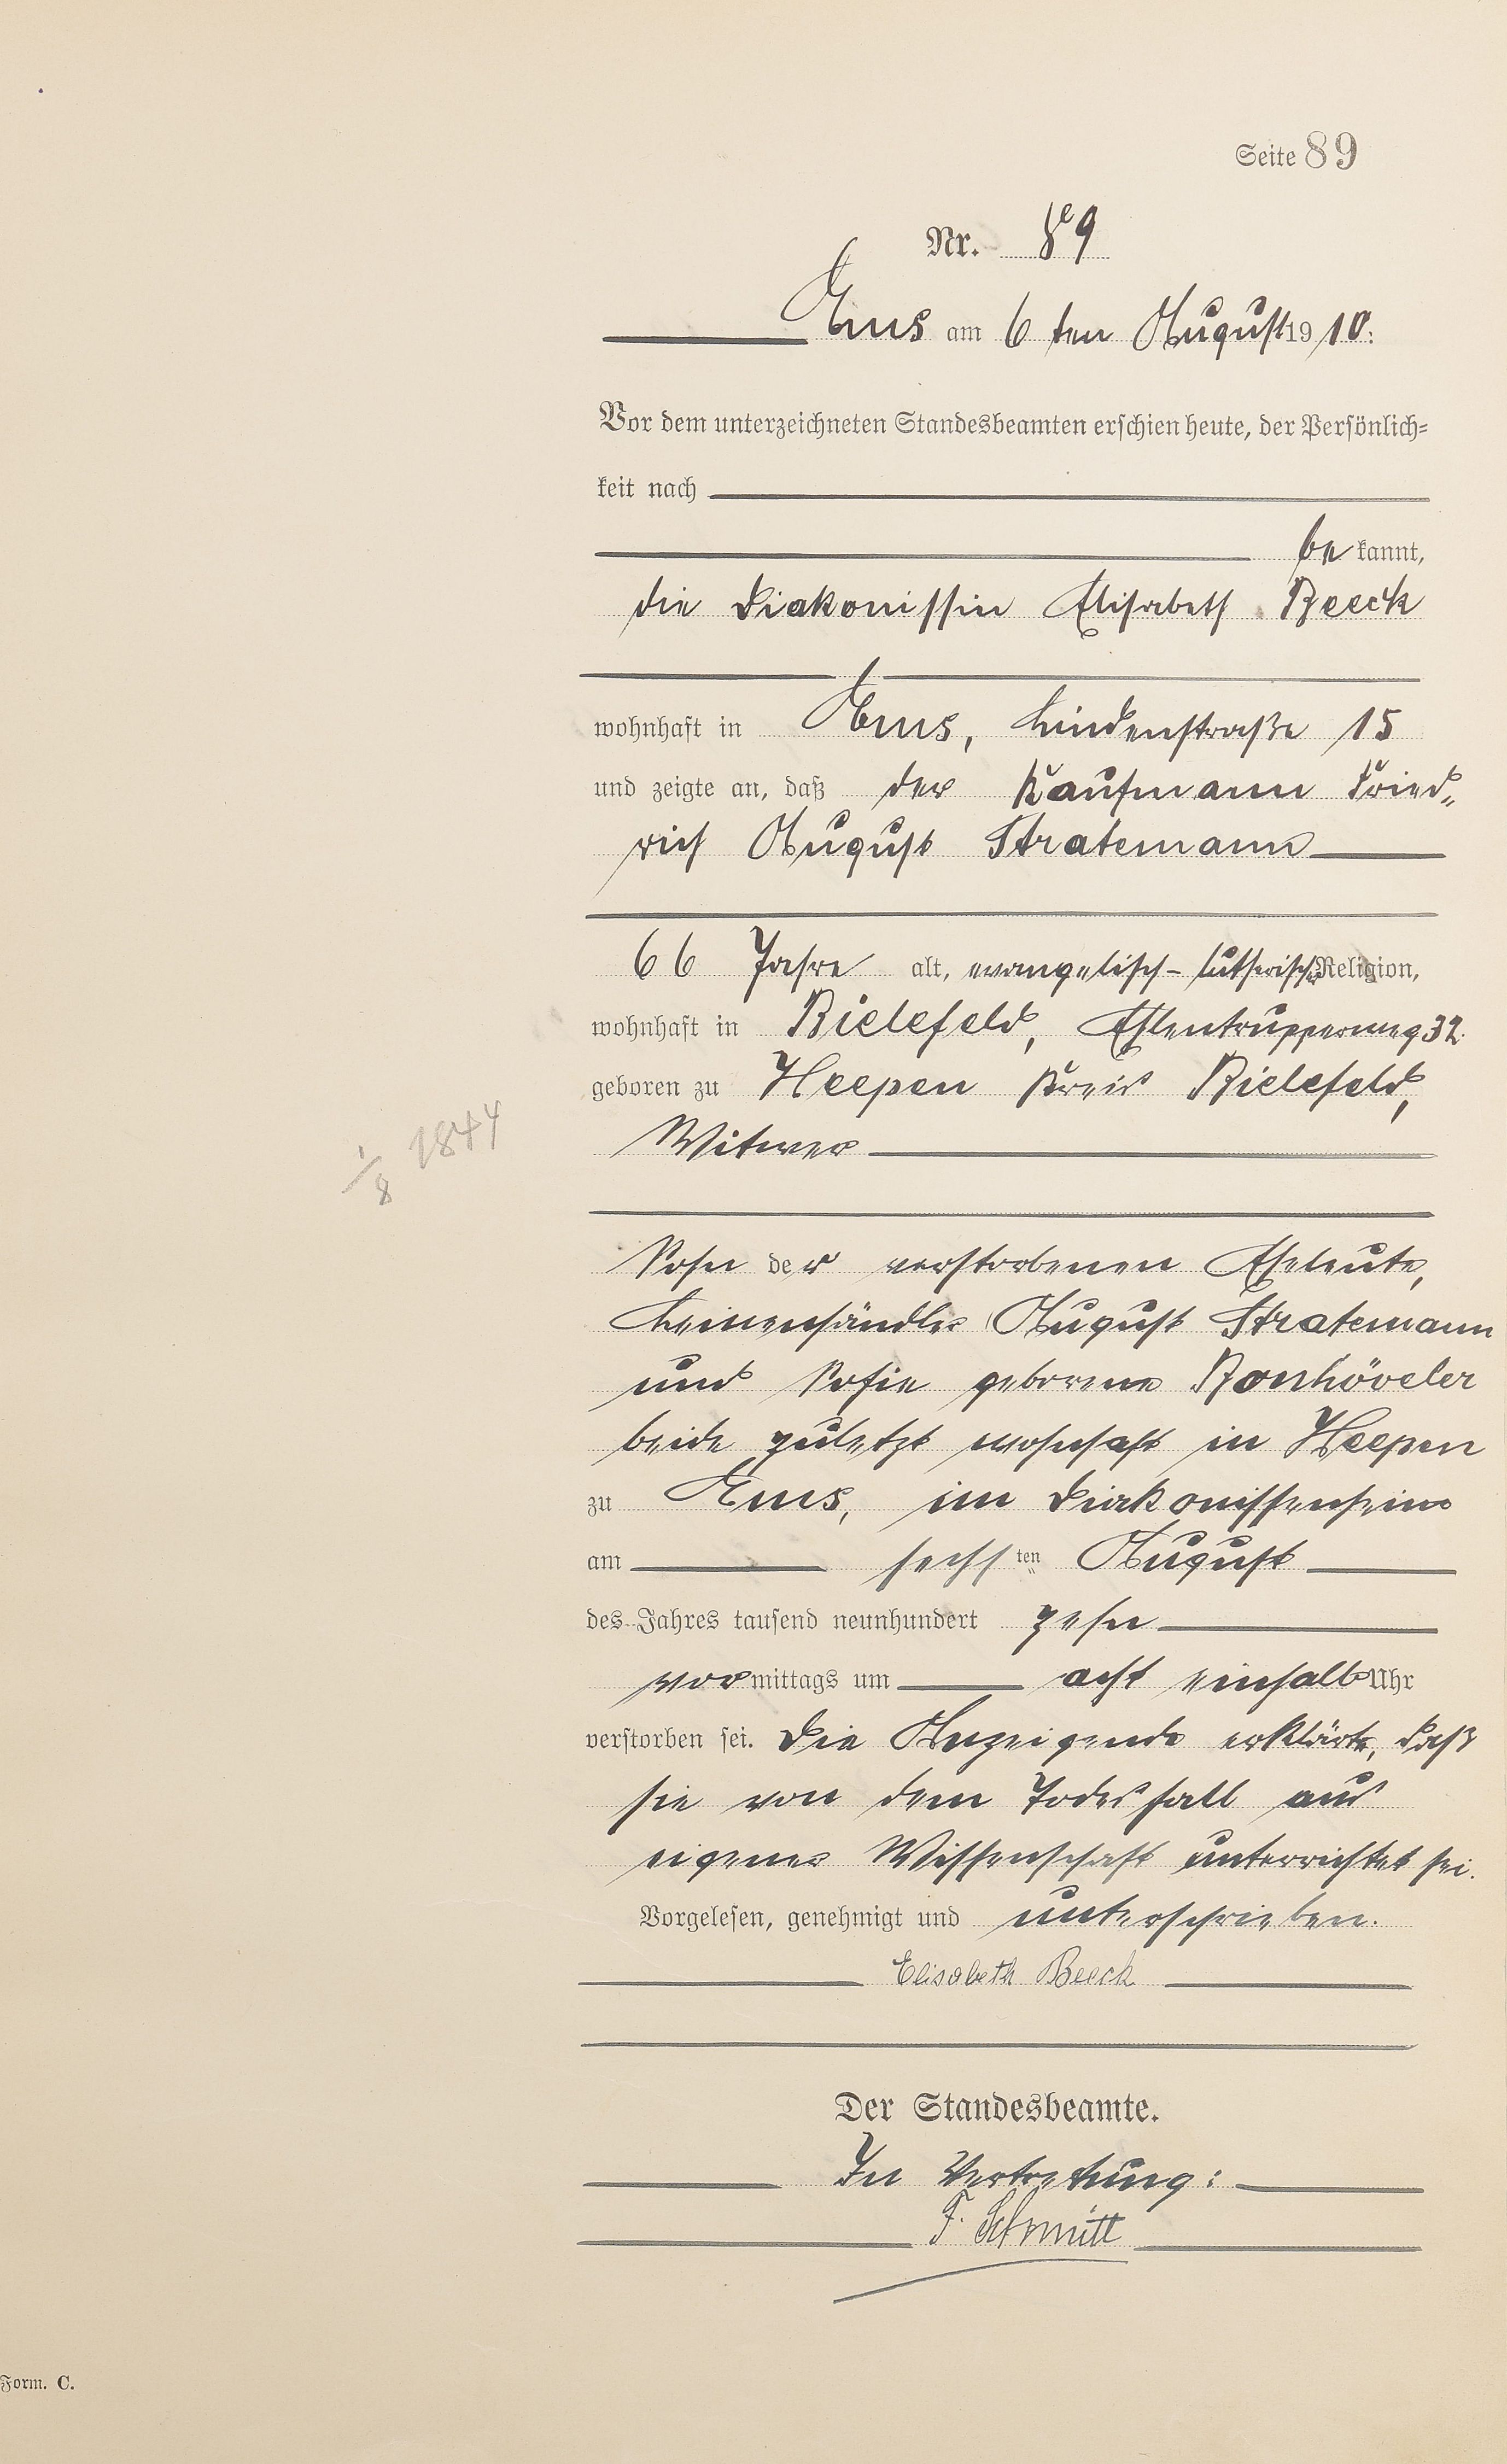 Seite 89
Nr. 89
Ems am 6ten August 1910.
Vor dem unterzeichneten Standesbeamten erschien heute, der Persönlich=
keit nach
be kannt,
die Diakonissin Elisabeth Beeck
wohnhaft in Ems, Lindenstraße 15
und zeigte an, daß der Kaufmann Fried„
rich August Stratemann
66 Jahre alt, evangelisch-lutherischer Religion,
wohnhaft in Bielefeld, Ehlentrupperweg 32.
geboren zu Heepen Kreis Bielefeld,
Witwer
1/8 1844
Sohn der verstorbenen Eheleute,
Leinenhändler August Stratemann
und Sofie geborene Bonhöveler
beide zuletzt wohnhaft in Heepen
zu Ems, im Diakonissenheim
am sechsten August
des Jahres tausend neunhundert zehn
vormittags um acht einhalb Uhr
verstorben sei. Die Anzeigende erklärte, daß
sie von dem Todesfall aus
eigener Wissenschaft unterrichtet sei.
Vorgelesen, genehmigt und unterschrieben.
Elisabeth Beeck
Der Standesbeamte.
In Vertretung:
F. Schmitt
Form. C.